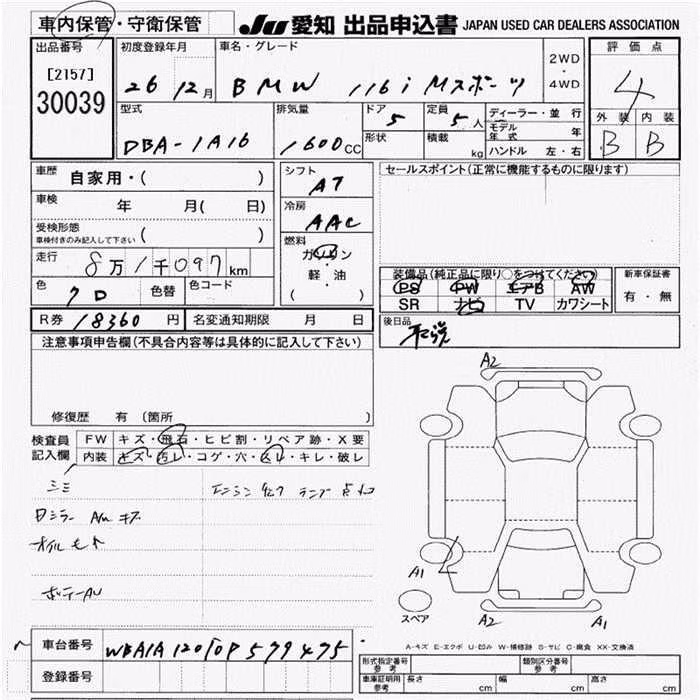 車内保管・守衛保管 JU 愛知 出品申込書 JAPAN USED CAR DEALERS ASSOCIATION
出品番号 初度登録年月 車名・グレード 2WD・4WD 評価点
[2157] 26 12月 BMW 116i Mスポーツ 4
30039
型式 排気量 ドア 定員 ディーラー・並行 外装 内装
DBA-1A16 1600CC 5 5人 モデル年式 年 B B
形状 積載 kg ハンドル 左・右
車歴 自家用・( ) シフト AT セールスポイント(正常に機能するものに限ります)
車検 年 月( 日) 冷房 AAC
受検形態 車検付きのみ記入して下さい ( ) 燃料 ガソリン
走行 8万1千097km 軽・油 装備品(純正品に限り○をつけてください) 新車保証書
色 色替 色コード ( ) PS PW エアB AW 有・無
SR ナビ TV カワシート
R券 18360円 名変通知期限 月 日 後日品
注意事項申告欄(不具合内容等は具体的に記入して下さい)
A2
修復歴 有 (箇所
検査員記入欄 FW キズ・飛石・ヒビ割・リペア跡・X要
内装 キズ・汚レ・コゲ・穴・スレ・キレ・破レ
エンジンチェックランプ点灯
A1
スペア
A2 A1
A-キズ E-エクボ U-凹み W-補修跡 S-サビ C-腐食 XX-交換済
車台番号 WBA1A120T0P579475
登録番号 形式指定番号 参考 類別区分番号 参考
車庫証明用 参考 長さ cm 幅 cm 高さ cm